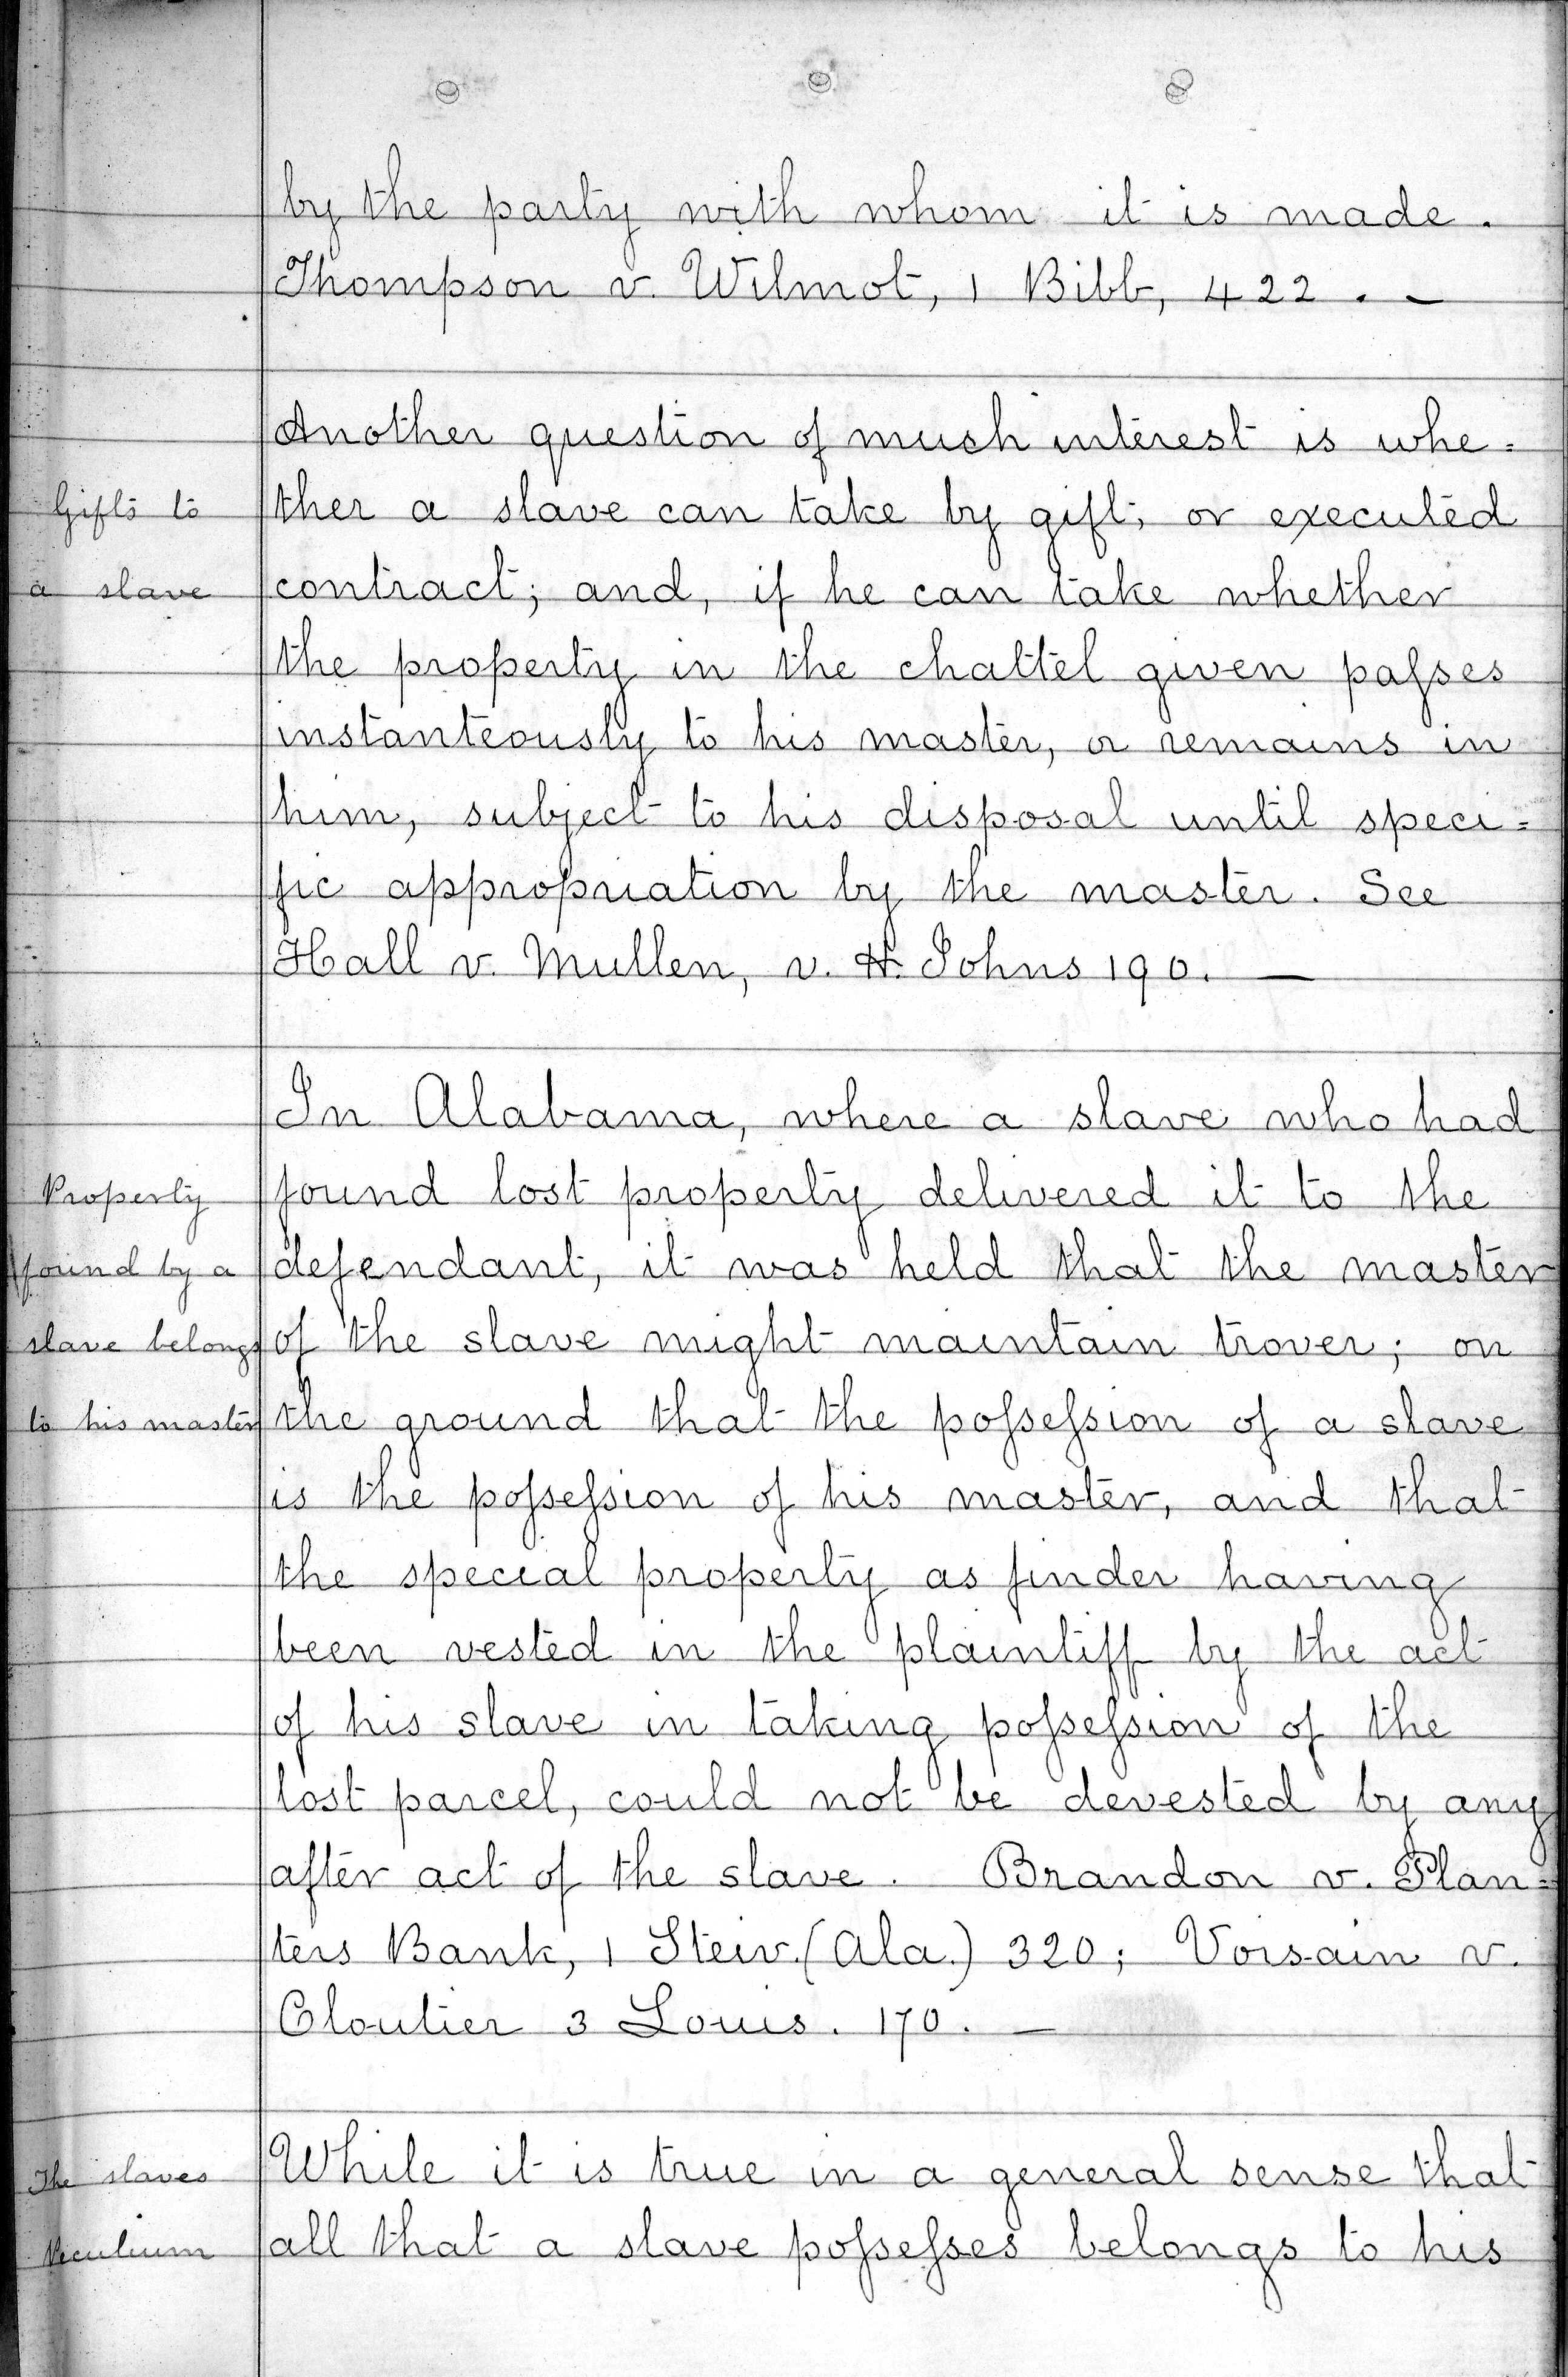 by the party with whom it is made.
Thompson v. Wilmot, 1 Bibb, 422. -
Another question of much interest is whe=
Gifts to
ther a slave can take by gift, or executed
a slave
contract; and, if he can take whether
the property in the chattel given paſses
instanteously to his master, or remains in
him, subject to his disposal until speci=
fic appropriation by the master. See
Hall v. Mullen, v. H. Johns 190. —
In Alabama, where a slave who had
Property
found lost property delivered it to the
found by a
defendant, it was held that the master
slave belongs
of the slave might maintain trover; on
to his master
the ground that the poſseſsion of a slave
is the poſseſsion of his master, and that
the special property as finder having
been vested in the plaintiff by the act
of his slave in taking poſseſsion of the
lost parcel, could not be devested by any
after act of the slave. Brandon v. Plan=
ters Bank, 1 Stew. (Ala.) 320; Vorsain v.
Cloutier 3 Louis. 170. —
The slaves
While it is true in a general sense that
Peculium
all that a slave poſseſses belongs to his